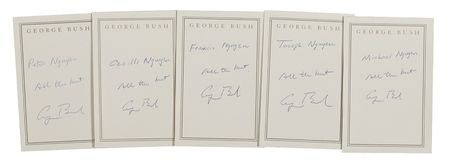 GEORGE BUSH
Peter Nguyen
All the best
G Bush
GEORGE BUSH
Nguyen
All the best
G Bush
GEORGE BUSH
Francis Nguyen
All the best
G Bush
GEORGE BUSH
Joseph Nguyen
All the best
G Bush
GEORGE BUSH
Michael Nguyen
All the best
G Bush